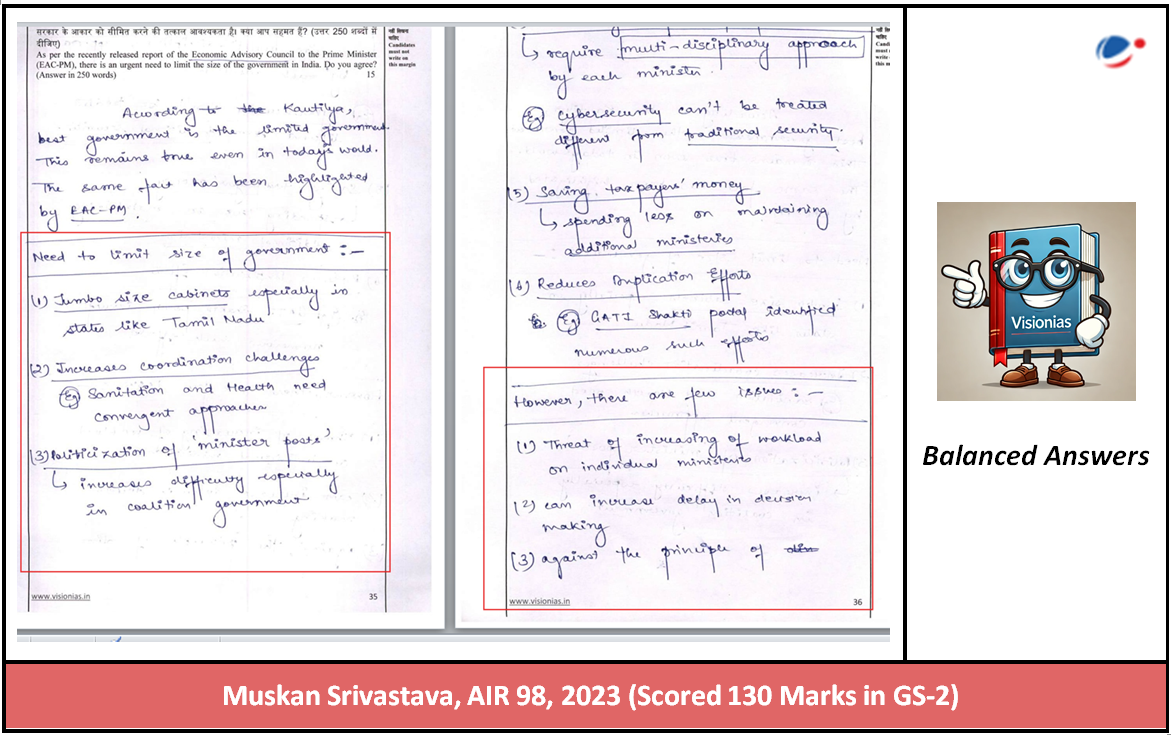 सरकार के आकार को सीमित करने की तत्काल आवश्यकता है। क्या आप सहमत हैं? (उत्तर 250 शब्दों में
दीजिए)
As per the recently released report of the Economic Advisory Council to the Prime Minister
(EAC-PM), there is an urgent need to limit the size of the government in India. Do you agree?
(Answer in 250 words) 15
Candidates
must not
write on
this margin
According to the Kautilya,
best government is the limited government.
This remains true even in today's world.
The same fact has been highlighted
by EAC-PM.
Need to limit size of government :-
(1) Jumbo size cabinets especially in
states like Tamil Nadu
(2) Increases coordination challenges
Eg Sanitation and Health need
convergent approaches
(3) Politicization of 'minister posts'
↳ increases difficulty especially
in coalition government
www.visionias.in 35
↳ require multi-disciplinary approach
by each minister.
Eg Cybersecurity can't be treated
different from traditional security.
(5) Saving taxpayers' money
↳ spending less on maintaining
additional ministeries
(6) Reduces Duplication Efforts
Eg GATI Shakti portal identified
numerous such efforts
However, there are few issues :-
(1) Threat of increasing of workload
on individual ministeries
(2) can increase delay in decision
making
(3) against the principle of
www.visionias.in 36
Visionias
Balanced Answers
Muskan Srivastava, AIR 98, 2023 (Scored 130 Marks in GS-2)